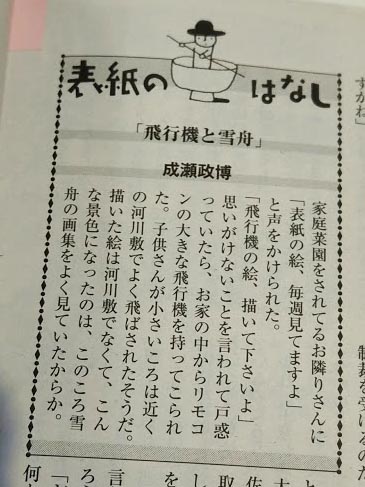 表紙のはなし
「飛行機と雪舟」
成瀬政博
家庭菜園をされてるお隣りさんに
「表紙の絵、毎週見てますよ」
と声をかけられた。
「飛行機の絵、描いて下さいよ」
思いがけないことを言われて戸惑
っていたら、お家の中からリモコ
ンの大きな飛行機を持ってこられ
た。子供さんが小さいころは近く
の河川敷でよく飛ばされたそうだ。
描いた絵は河川敷でなくて、こん
な景色になったのは、このころ雪
舟の画集をよく見ていたからか。
すかね」